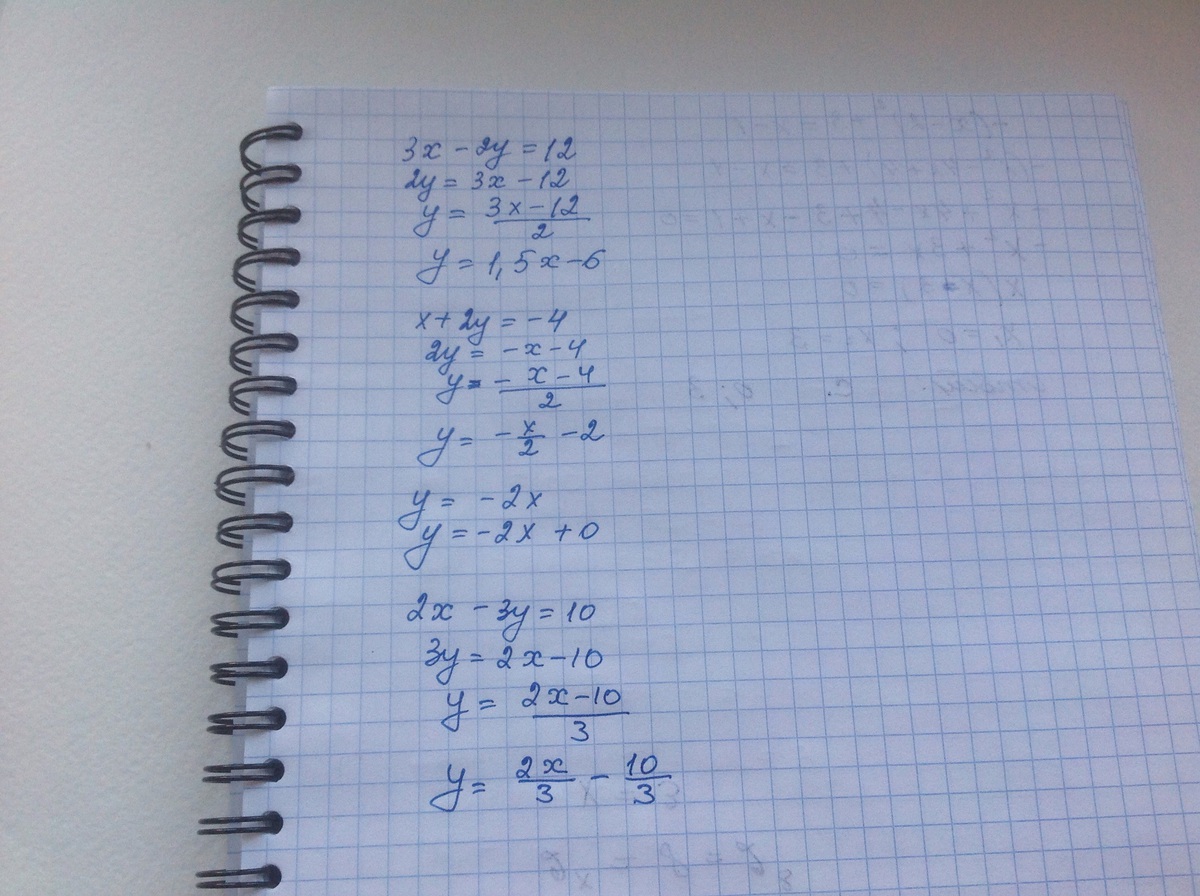 3x - 2y = 12
2y = 3x - 12
y = (3x - 12)/2
y = 1,5x - 6
x + 2y = -4
2y = -x - 4
y = (-x - 4)/2
y = -x/2 - 2
y = -2x
y = -2x + 0
2x - 3y = 10
3y = 2x - 10
y = (2x - 10)/3
y = 2x/3 - 10/3